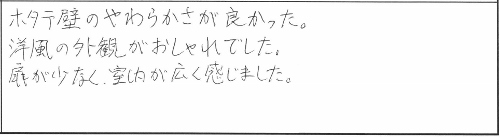 ホタテ壁のやわらかさが良かった。
洋風の外観がおしゃれでした。
扉が少なく、室内が広く感じました。